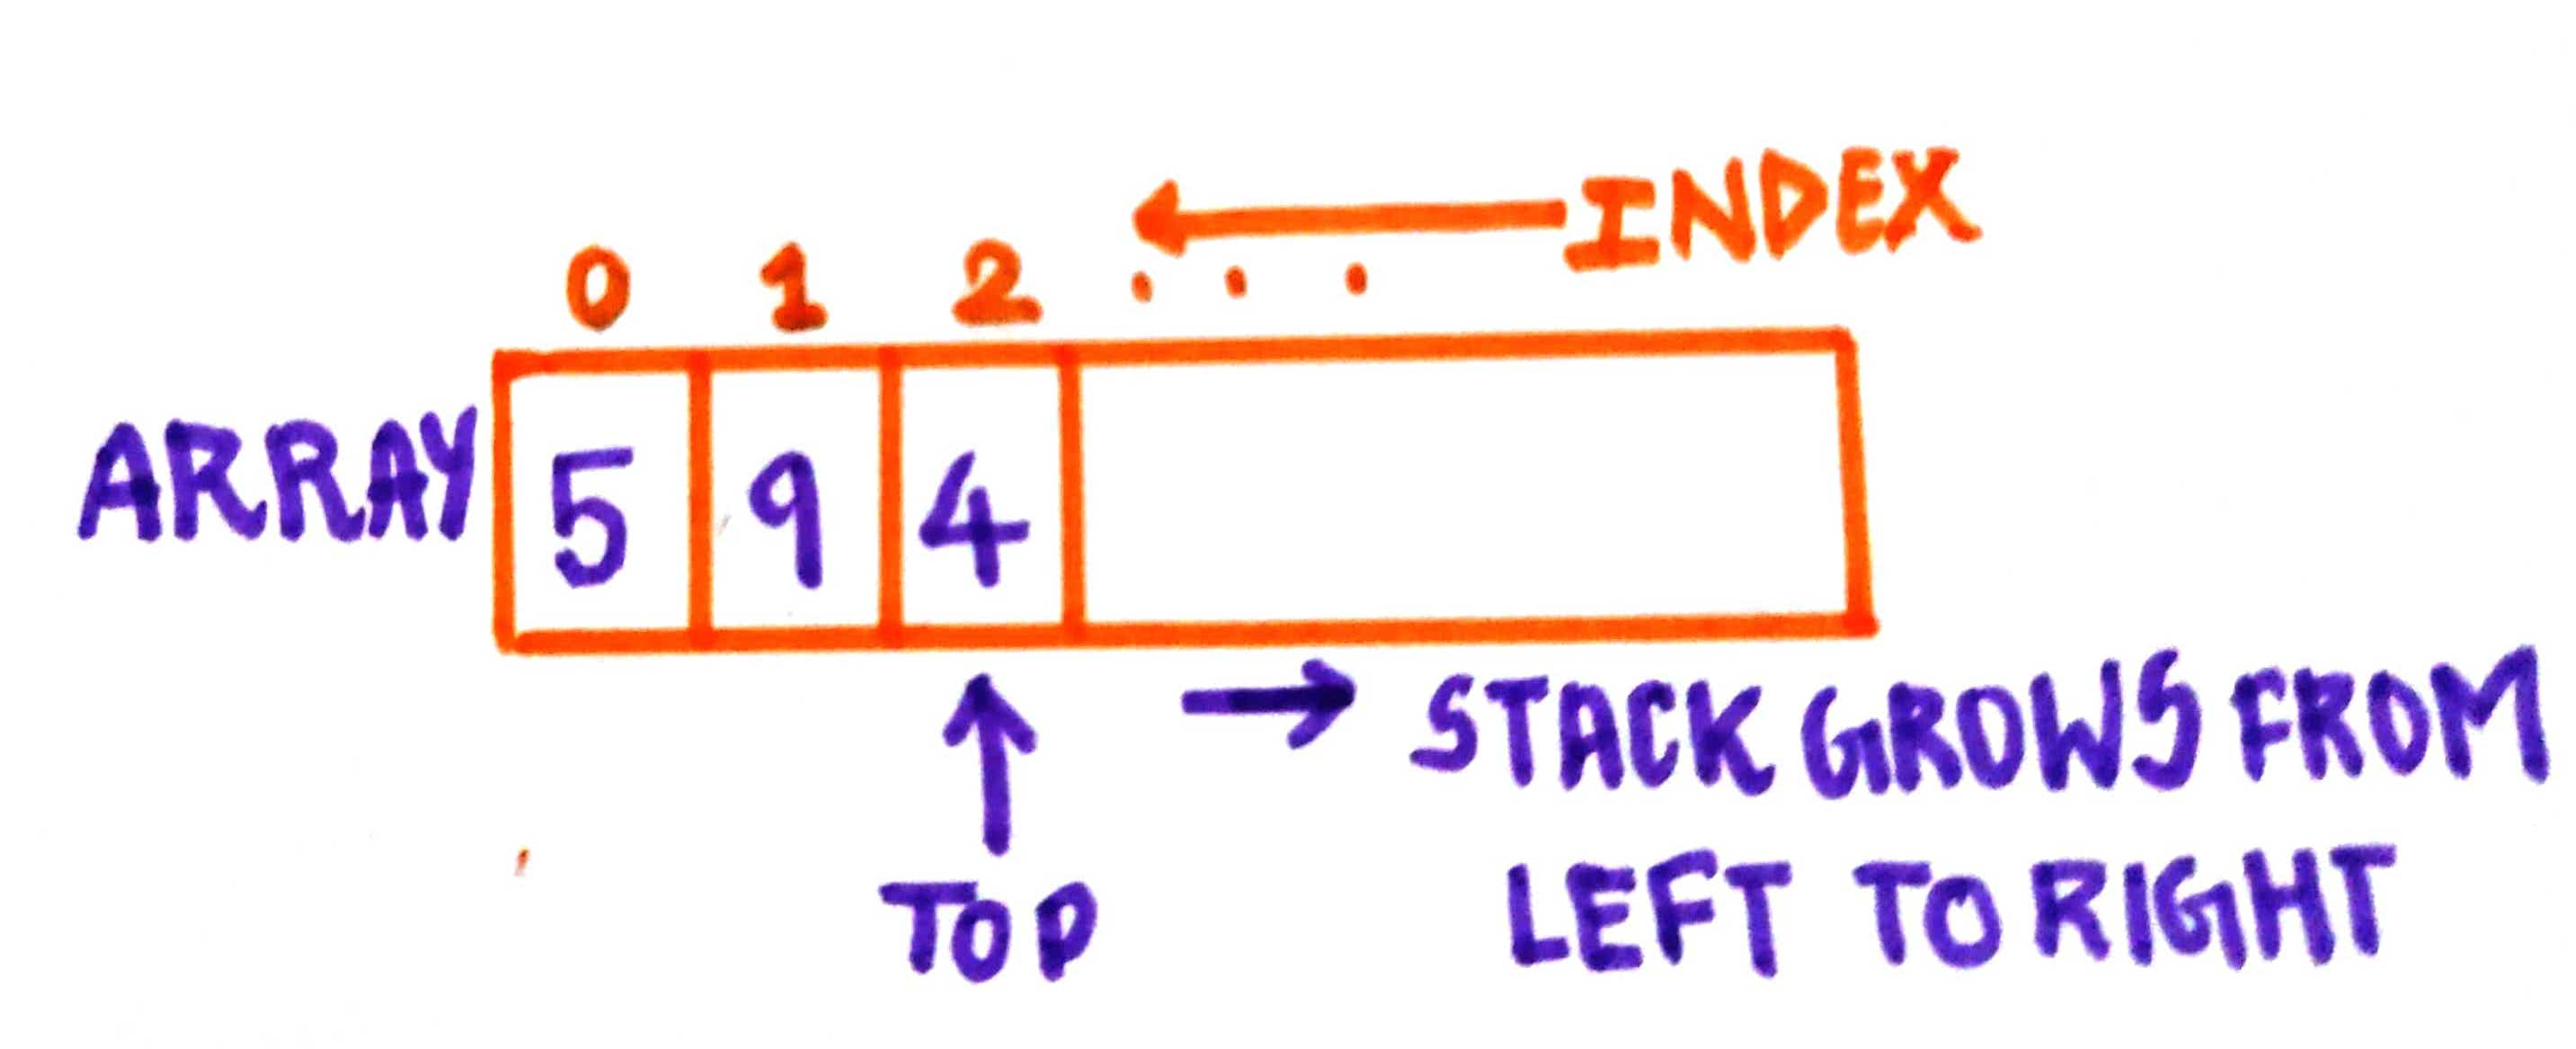 INDEX
0 1 2 . . .
ARRAY 5 9 4
STACK GROWS FROM
LEFT TO RIGHT
TOP